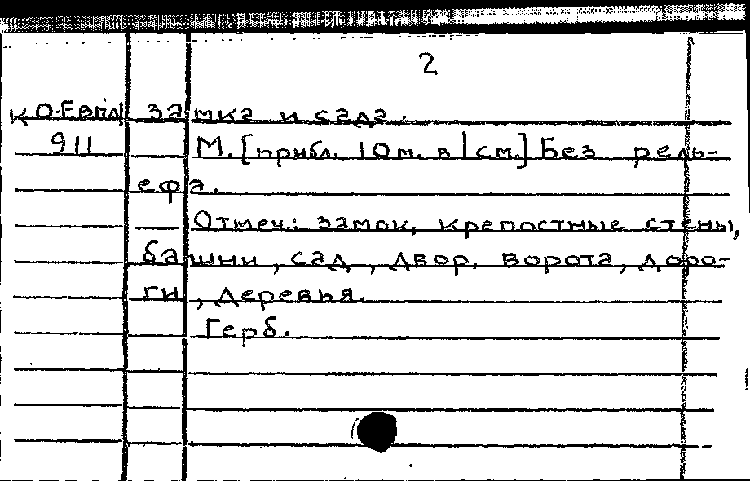 2
К О-Евпл замка и сада.
911 М. [прибл. 10 м. в 1 см.] Без рель-
ефа.
Отмеч.: замок, крепостные стены,
башни, сад, двор, ворота, доро-
ги, деревья.
Герб.